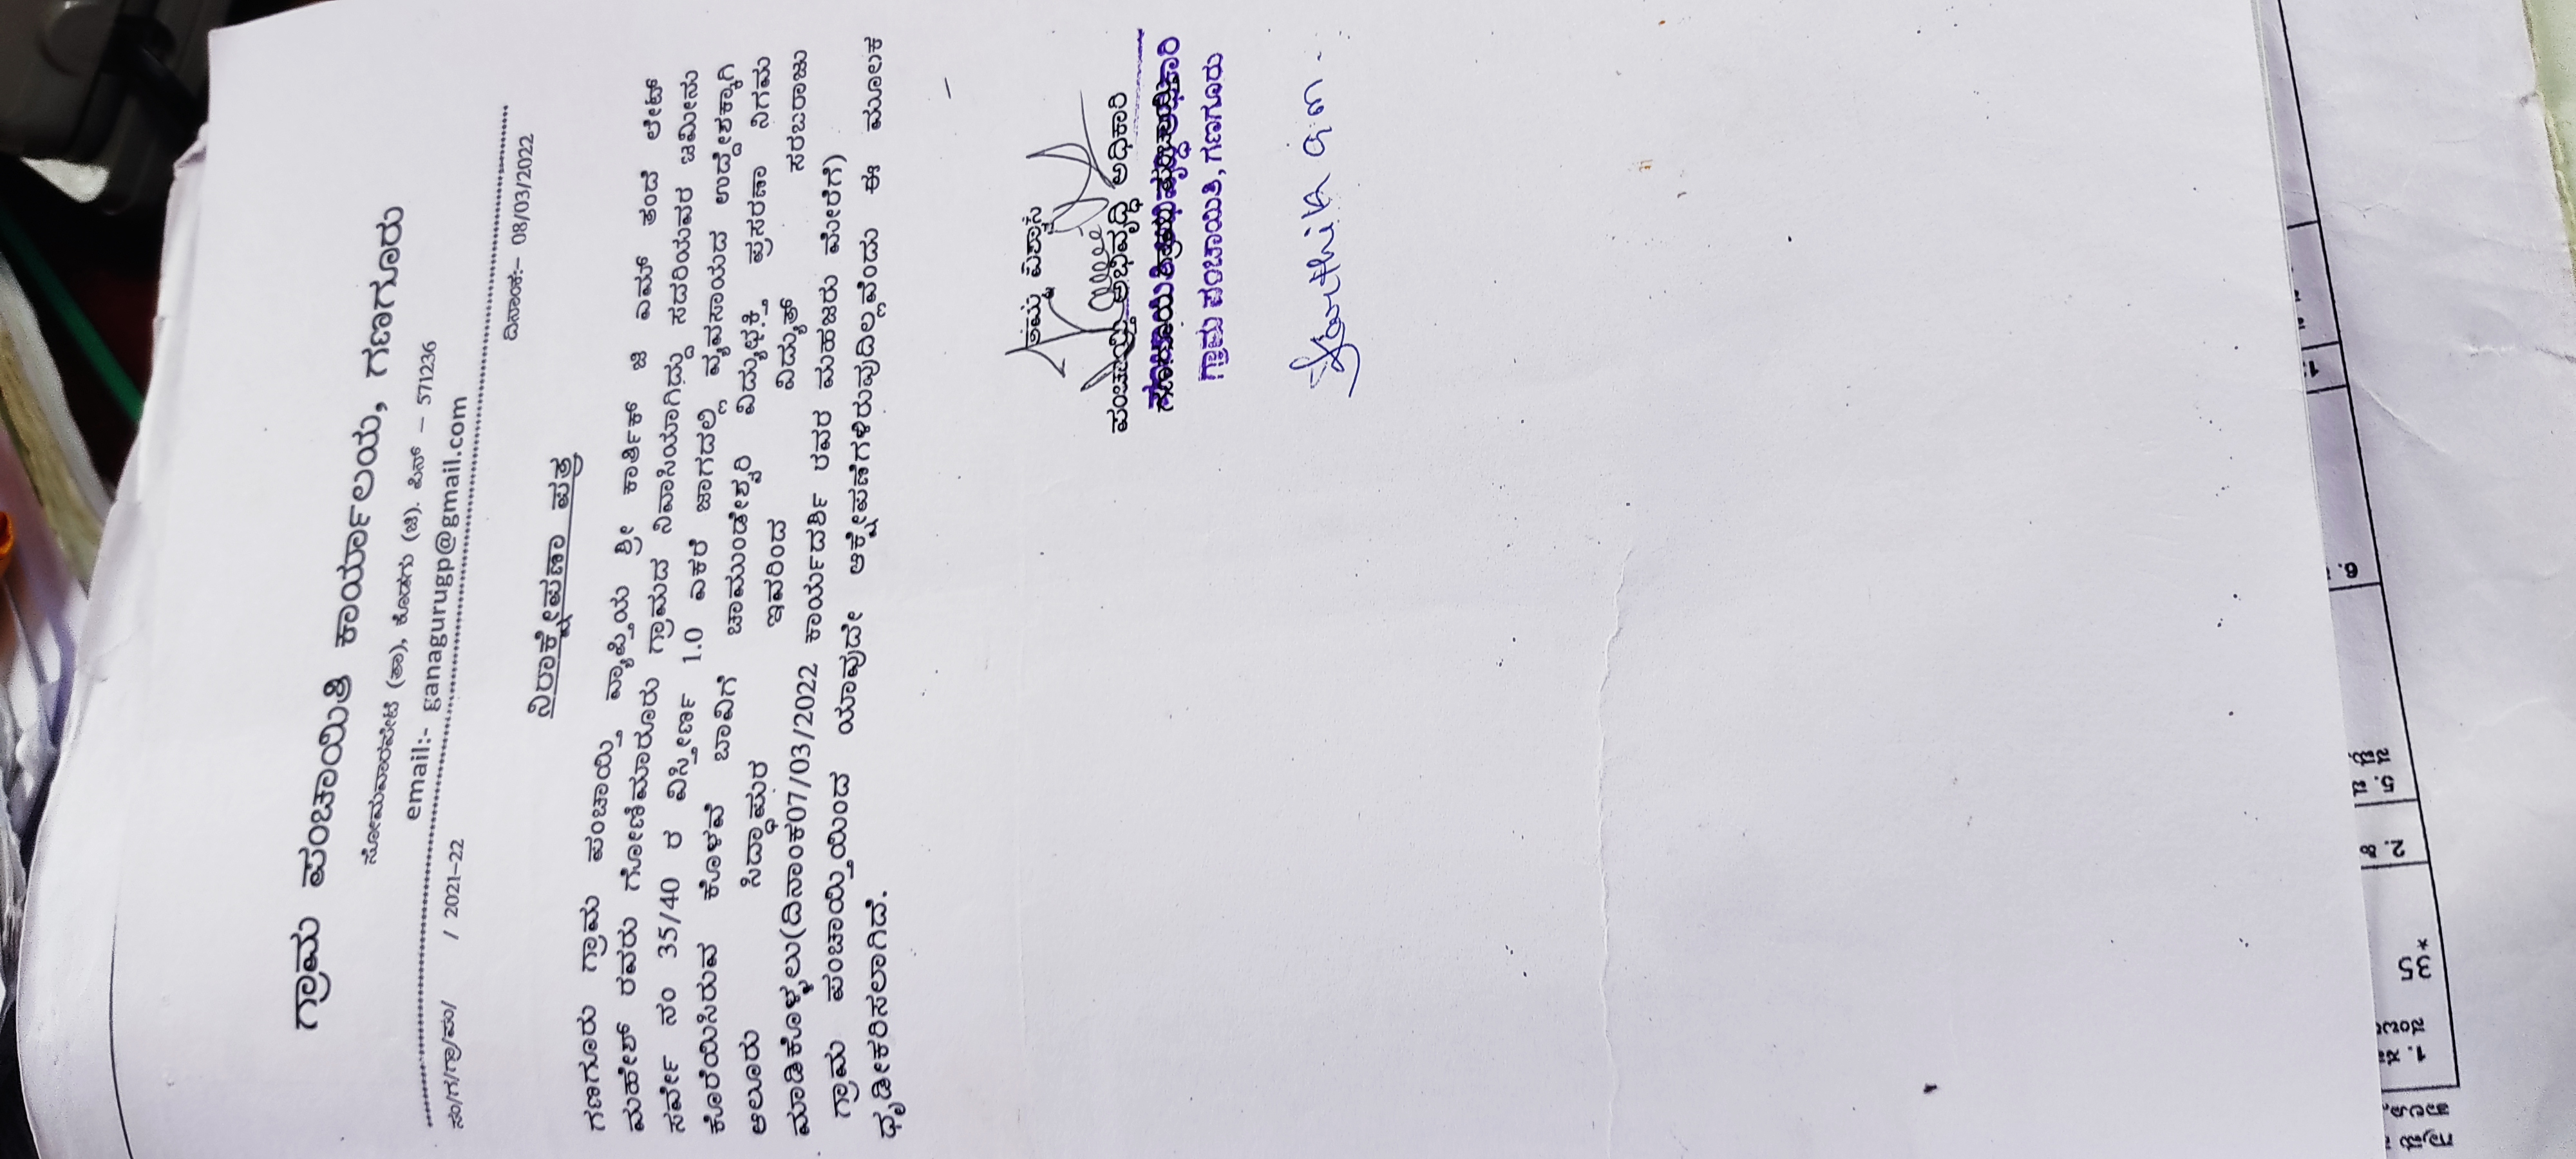 ಗ್ರಾಮ ಪಂಚಾಯಿತಿ ಕಾರ್ಯಾಲಯ, ಗಣಗೂರು
ಸೋಮವಾರಪೇಟೆ (ತಾ), ಕೊಡಗು (ಜಿ). ಪಿನ್ – 571236
email:- ganagurugp@gmail.com
ಸಂ/ಗ/ಗ್ರಾ/ಪಂ/ / 2021-22
ದಿನಾಂಕ:- 08/03/2022
ನಿರಾಕ್ಷೇಪಣಾ ಪತ್ರ
ಗಣಗೂರು ಗ್ರಾಮ ಪಂಚಾಯ್ತಿ ವ್ಯಾಪ್ತಿಯ ಶ್ರೀ ಕಾರ್ತಿಕ್ ಜಿ ಎಮ್ ತಂದೆ ಲೇಟ್
ಮಹೇಶ್ ರವರು ಗೋಣಿಮಾರೂರು ಗ್ರಾಮದ ನಿವಾಸಿಯಾಗಿದ್ದು ಸದರಿಯವರ ಜಮೀನು
ಸರ್ವೇ ನಂ 35/40 ರ ವಿಸ್ತೀರ್ಣ 1.0 ಎಕರೆ ಜಾಗದಲ್ಲಿ ವ್ಯವಸಾಯದ ಉದ್ದೇಶಕ್ಕಾಗಿ
ಕೊರೆಯಿಸಿರುವ ಕೊಳವೆ ಬಾವಿಗೆ ಚಾಮುಂಡೇಶ್ವರಿ ವಿದ್ಯುಚ್ಛಕ್ತಿ ಪ್ರಸರಣಾ ನಿಗಮ
ಆಲೂರು ಸಿದ್ಧಾಪುರ ಇವರಿಂದ ವಿದ್ಯುತ್ ಸರಬರಾಜು
ಮಾಡಿಕೊಳ್ಳಲು(ದಿನಾಂಕ07/03/2022 ಕಾರ್ಯದರ್ಶಿ ರವರ ಮಹಜರು ಮೇರೆಗೆ)
ಗ್ರಾಮ ಪಂಚಾಯ್ತಿಯಿಂದ ಯಾವುದೇ ಆಕ್ಷೇಪಣೆಗಳಿರುವುದಿಲ್ಲವೆಂದು ಈ ಮೂಲಕ
ಧೃಡೀಕರಿಸಲಾಗಿದೆ.
ತಮ್ಮ ವಿಶ್ವಾಸಿ
ಪಂಚಾಯ್ತಿ ಅಭಿವೃದ್ಧಿ ಅಧಿಕಾರಿ
ಗ್ರಾಮ ಪಂಚಾಯಿತಿ, ಗಣಗೂರು
Karthik G.M.